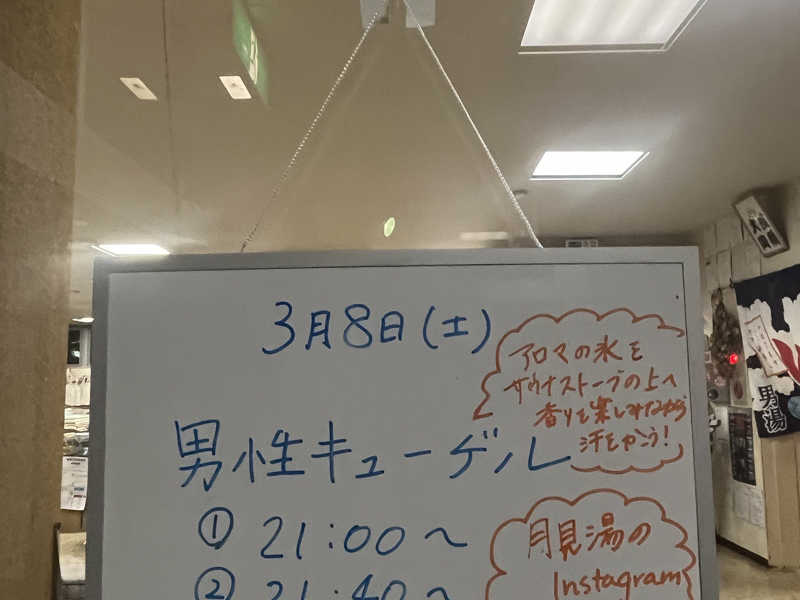 3月8日(土)
アロマの氷を
サウナストーブの上へ
香りを楽しみながら
汗をかこう!
男性キューゲル
① 21:00~
② 21:40~
月見湯の
Instagram
男湯